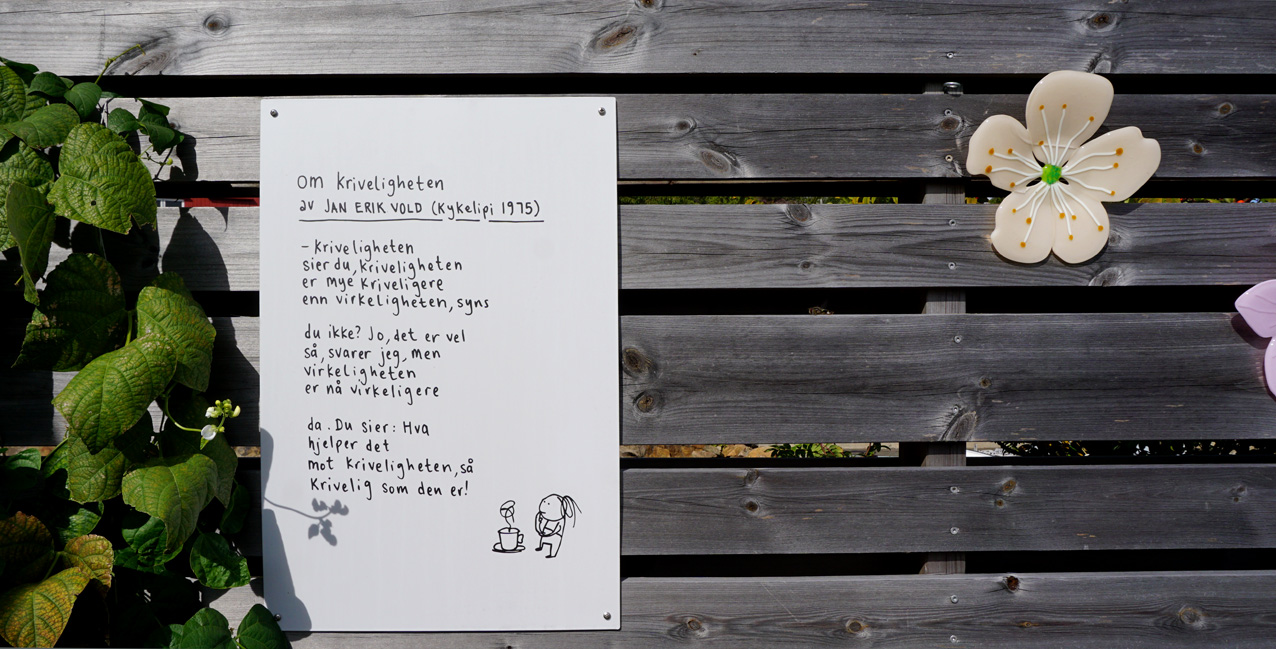 Om Kriveligheten
av JAN ERIK VOLD (Kykelipi 1975)
- Kriveligheten
sier du, Kriveligheten
er mye Kriveligere
enn virkeligheten, syns
du ikke? Jo, det er vel
så, svarer jeg, men
virkeligheten
er nå virkeligere
da. Du sier: Hva
hjelper det
mot Kriveligheten, så
Krivelig som den er!